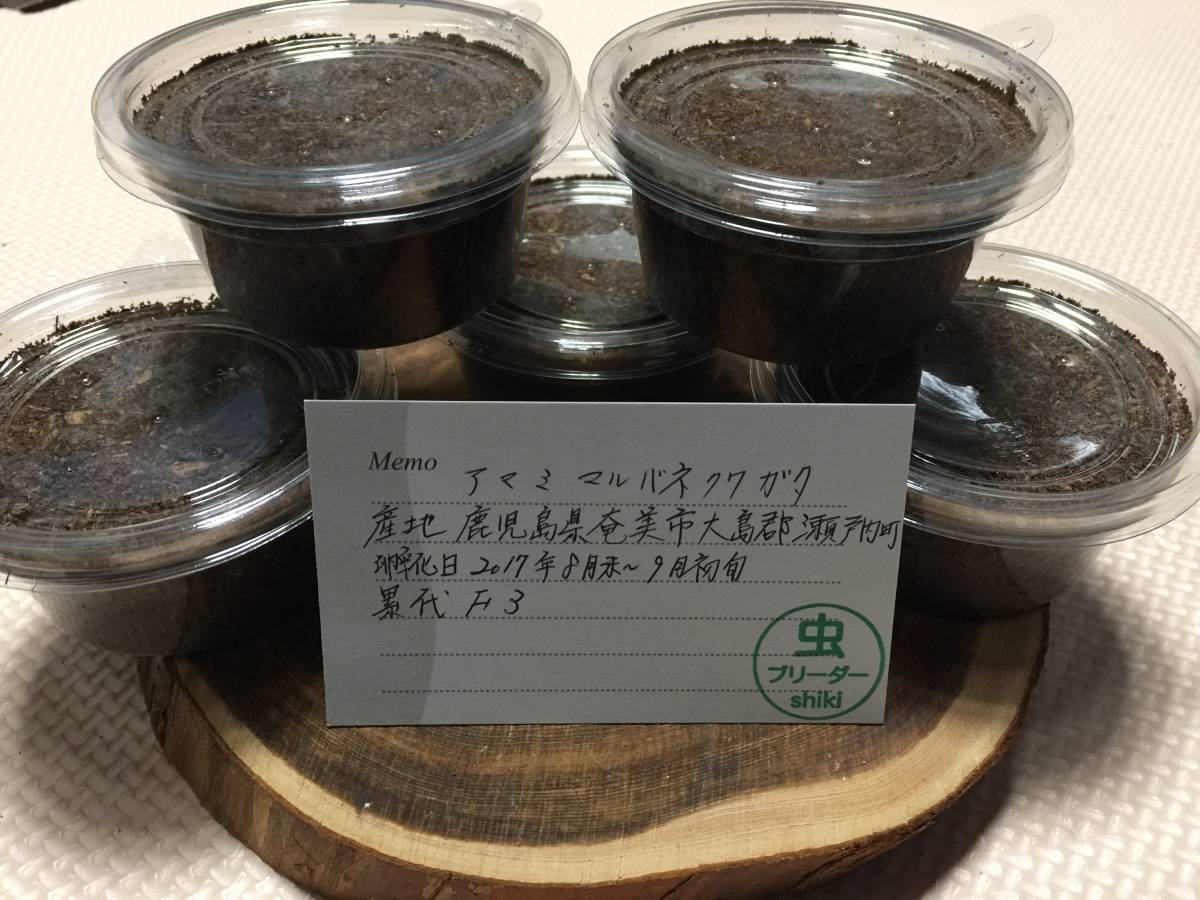 Memo
アマミマルバネクワガタ
産地 鹿児島県奄美市大島郡瀬戸内町
孵化日 2017年8月末～9月初旬
累代 F3
虫
ブリーダー
shiki